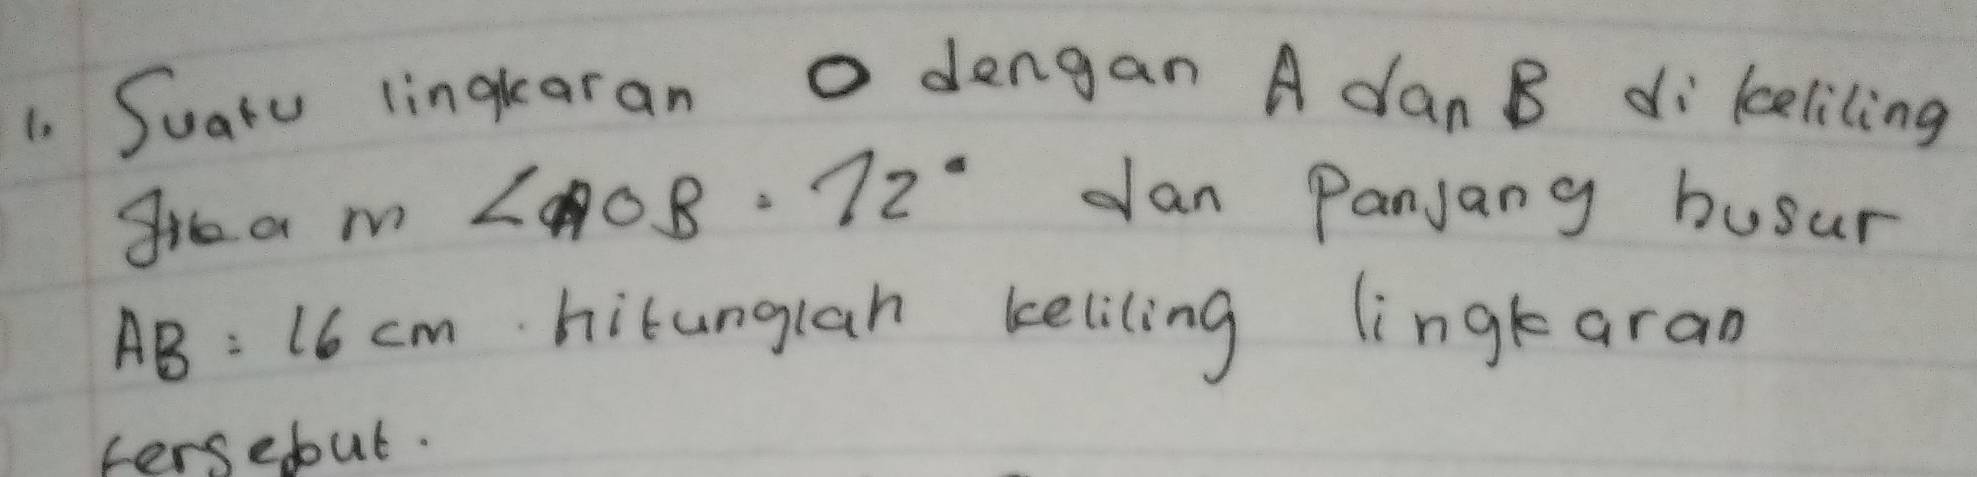 1. Suatu lingkaran O dengan A dan B di keliling
Jika m ∠AOB = 72° dan Panjang busur
AB = 16 cm . hitunglah keliling lingkaran
tersebut.